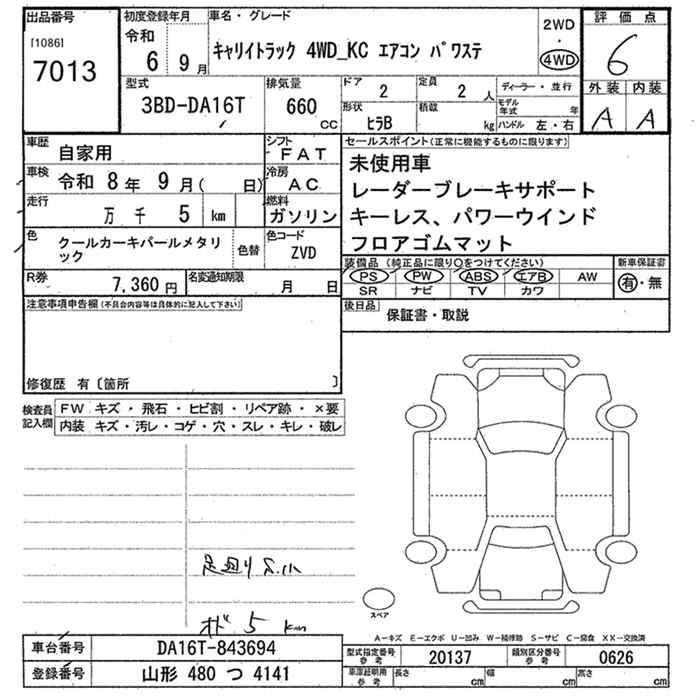 出品番号
[1086]
7013
初度登録年月
令和
6 9月
車名・グレード
キャリイトラック 4WD_KC エアコン パワステ
2WD
・
4WD
評価点
6
外装 内装
A A
型式
3BD-DA16T
排気量
660
cc
ドア
2
定員
2人
形状
ヒラB
積載
kg
ディーラー・並行
モデル年式 年
ハンドル 左・右
車歴
自家用
シフト
FAT
車検
令和 8年 9月( 日)
冷房
AC
走行
万 千 5 km
燃料
ガソリン
色
クールカーキパールメタリック
色替
色コード
ZVD
R券
7,360円
名変通知期限
月 日
セールスポイント(正常に機能するものに限ります)
未使用車
レーダーブレーキサポート
キーレス、パワーウインド
フロアゴムマット
装備品(純正品に限り○をつけてください)
PS PW ABS エアB AW
SR ナビ TV カワ
新車保証書
有・無
後日品
保証書・取説
注意事項申告欄(不具合内容等は具体的に記入して下さい)
修復歴 有〔箇所 〕
検査員記入欄
FW キズ・飛石・ヒビ割・リペア跡・×要
内装 キズ・汚レ・コゲ・穴・スレ・キレ・破レ
足廻り
5 km
スペア
A－キズ E－エクボ U－凹み W－補修跡 S－サビ C－腐食 XX－交換済
車台番号
DA16T-843694
登録番号
山形 480 つ 4141
型式指定番号
参考
20137
類別区分番号
参考
0626
車庫証明用
参考
長さ cm
幅 cm
高さ cm